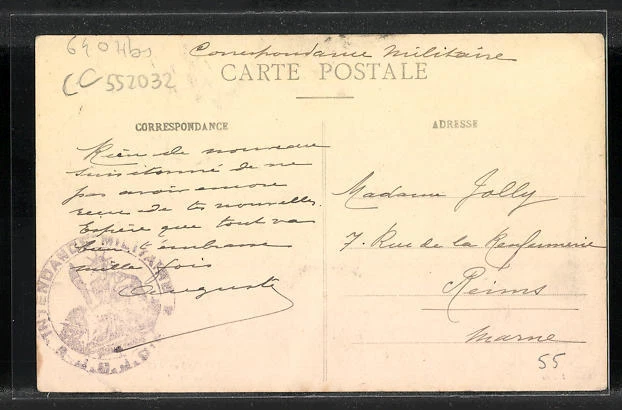 6904bs
CC 552032
Correspondance Militaire
CARTE POSTALE
CORRESPONDANCE
ADRESSE
Rien de nouveau
suis étonné de ne
pas avoir encore
reçu de tes nouvelles.
Espère que tout va
bien t'embrasse
mille fois
Auguste
Madame Jolly
7. Rue de la Renfermerie
Reims
Marne
55
INTENDANCE MILITAIRE